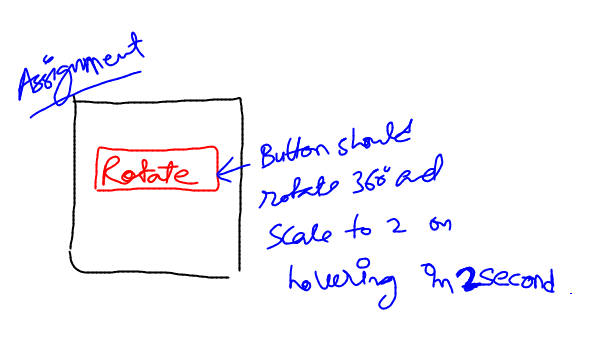 Assignment
Rotate
Button should
rotate 360° and
scale to 2 on
hovering in 2 second.